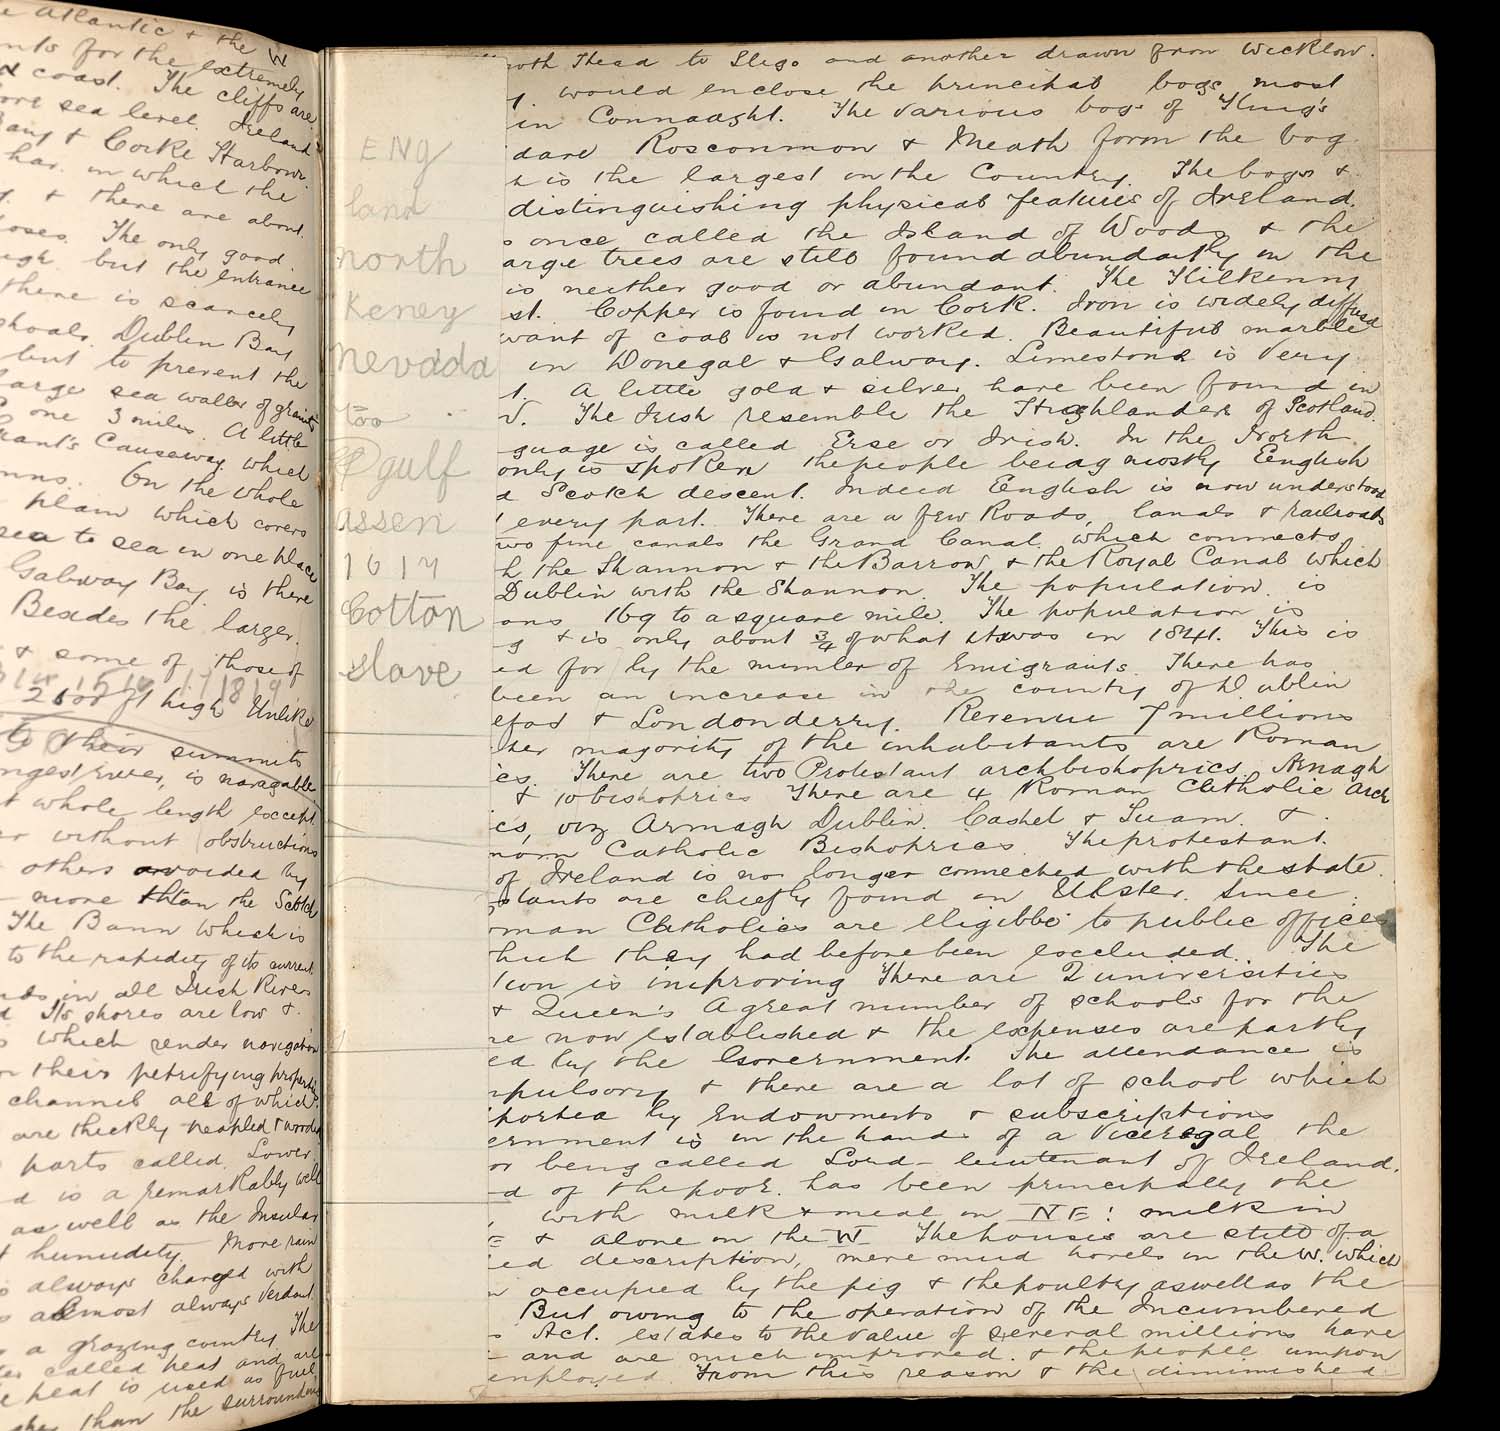 e Atlantic & the W
nts for the extremely
coast. The cliffs are
ove sea level. Ireland
Bay & Corke Harbour
har. in which the
& there are about
oses. The only good
ugh. but the entrance
there is scarcely
shoals. Dublin Bay
but to prevent the
large sea walls of granite
one 3 miles. A little
Grant's Causeway which
mns. On the whole
plain which covers
sea to sea in one place
Galway Bay is there
Besides the larger
& some of those of
2600 ft high Unlike
to their summits
ngest river, is navagable
t whole length except
without obstructions
others avoided by
more than the Scotch
The Bann which is
to the rapidity of its current
nds in all Irish Rivers
d Its shores are low &
which render navigation
their petrifying properties
channel all of which
are thickly peopled & wooded
parts called Lower
d is a remarkably well
as well as the Insular
& humidity. More rain
always charged with
almost always verdant
a grazing country. The
called peat and are
peat is used as fuel
than the surrounding
ENg
land
north
Keney
nevadda
too
gulf
assen
1617
Cotton
slave
outh Head to Sligo and another drawn from Wicklow.
y. would enclose the principal bogs most
in Connaught. The various bogs of King's
dare Roscommon & Meath form the bog
h is the largest in the Country. The bogs &
distinguishing physical features of Ireland.
s once called the Island of Woods & the
arge trees are still found abundantly in the
is neither good or abundant. The Kilkenny
st. Copper is found in Cork. Iron is widely diffused
want of coal is not worked. Beautiful marble
in Donegal & Galway. Limestone is very
t. A little gold & silver have been found in
W. The Irish resemble the Highlanders of Scotland.
guage is called Erse or Irish. In the North
only is spoken the people being mostly English
d Scotch descent. Indeed English is now understood
every part. There are a few Roads, Canals & railroads
two fine canals the Grand Canal which connects
h the Shannon & the Barrow, & the Royal Canal which
Dublin with the Shannon. The population is
ons 169 to a square mile. The population is
g & is only about 3/4 of what it was in 1841. This is
ed for by the number of Emigrants. There has
been an increase in the country of Dublin
elfast & Londonderry. Revenue 7 millions
ter majority of the inhabitants are Roman
ics. There are two Protestant archbishoprics Armagh
& 10 bishoprics There are 4 Roman Catholic Arch
cs, viz Armagh Dublin. Cashel & Tuam. &
nom Catholic Bishoprics. The protestant.
of Ireland is no longer connected with the state.
stants are chiefly found in Ulster. Since
oman Catholics are eligible to public offices
hich they had before been excluded. The
tion is improving There are 2 universities
& Queen's A great number of schools for the
re now established & the expenses are partly
ed by the Government. The attendance is
mpulsory & there are a lot of school which
ported by Endowments & subscriptions
ernment is in the hands of a Viceregal the
or being called Lord-lieutenant of Ireland.
d of the poor has been principally the
, with milk & meal in NE: milk in
E & alone in the W The houses are still of a
ed description, mere mud hovels in the W. which
n occupied by the pig & the poultry as well as the
But owing to the operation of the Incumbered
s Act. estates to the value of several millions have
and are much improved. & the people umpon
employed From this reason & the diminished